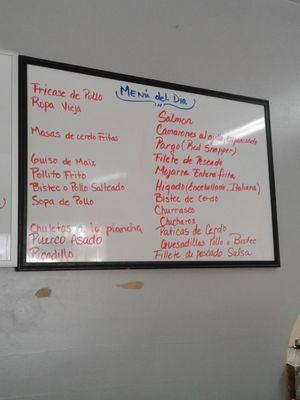 Menú del Dia
Fricase de Pollo
Ropa Vieja
Masas de cerdo Fritas
Guiso de Maiz
Pollito Frito
Bistec o Pollo Salteado
Sopa de Pollo
Chuletas a la plancha
Puerco Asado
Picadillo
Salmon
Camarones al ajillo, empanizado
Pargo (Red Snapper)
Filete de Pescado
Mojarra Entera frita
Higado (Encebollado, Italiana)
Bistec de Cerdo
Churrasco
Chicharos
Paticas de Cerdo
Quesadillas Pollo o Bistec
Fillete de pescado Salsa